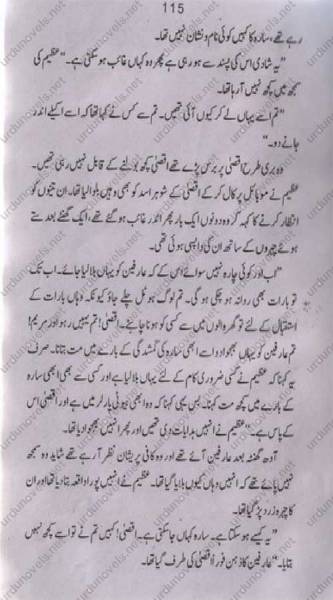 115
رہے تھے، سارہ کا کہیں کوئی نام و نشان نہیں تھا۔
"یہ شادی اس کی پسند سے ہو رہی ہے پھر وہ کہاں غائب ہو سکتی ہے۔" عظیم کی
سمجھ میں کچھ نہیں آ رہا تھا۔
"تم اسے یہاں لے کر کیوں آئی تھیں۔ تم سے کس نے کہا تھا کہ اسے اکیلے اندر
جانے دو۔"
وہ بری طرح اقصیٰ پر برس پڑے تھے اقصیٰ کچھ بولنے کے قابل نہیں رہی تھی۔
عظیم نے موبائل پر کال کر کے اقصیٰ کے شوہر اسد کو بھی وہیں بلوا لیا تھا۔ ان تینوں کو
انتظار کرنے کا کہہ کر وہ دونوں ایک بار پھر اندر غائب ہو گئے تھے، ایک گھنٹے بعد ستے
ہوئے چہروں کے ساتھ ان کی واپسی ہوئی تھی۔
"اب اور کوئی چارہ نہیں سوائے اس کے کہ عارفین کو یہاں بلا لیا جائے۔ اب تک
تو بارات بھی روانہ ہو چکی ہو گی۔ تم لوگ ہوٹل چلے جاؤ کیونکہ وہاں بارات کے
استقبال کے لئے تو گھر والوں میں سے کسی کو ہونا چاہئے۔ اقصیٰ! تم یہیں رہو اور مریم!
تم عارفین کو یہاں بھجوا دو اسے ابھی سارہ کی گمشدگی کے بارے میں مت بتانا۔ صرف
یہ کہنا کہ عظیم نے کسی ضروری کام کے لئے یہاں بلایا ہے اور کسی سے بھی ابھی سارہ
کے بارے میں کچھ مت کہنا۔ بس یہی کہنا کہ وہ ابھی بیوٹی پارلر میں ہے اور اقصیٰ اس
کے پاس ہے۔" عظیم نے انہیں ہدایات دی تھیں اور پھر انہیں بھجوا دیا تھا۔
آدھ گھنٹہ بعد عارفین آئے تھے اور وہ کافی پریشان نظر آ رہے تھے شاید وہ سمجھ
نہیں پائے تھے کہ انہیں وہاں کیوں بلایا گیا تھا۔ عظیم نے انہیں پورا واقعہ بتا دیا تھا اور ان
کا چہرہ زرد پڑ گیا تھا۔
"یہ کیسے ہو سکتا ہے۔ سارہ کہاں جا سکتی ہے۔ اقصیٰ! کہیں تم نے تو اسے کچھ نہیں
بتایا۔" عارفین کا ذہن فوراً اقصیٰ کی طرف گیا تھا۔
urdunovels.net